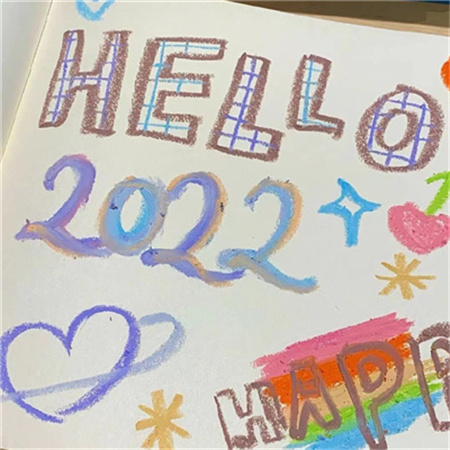 HELLO
2022
HAPP